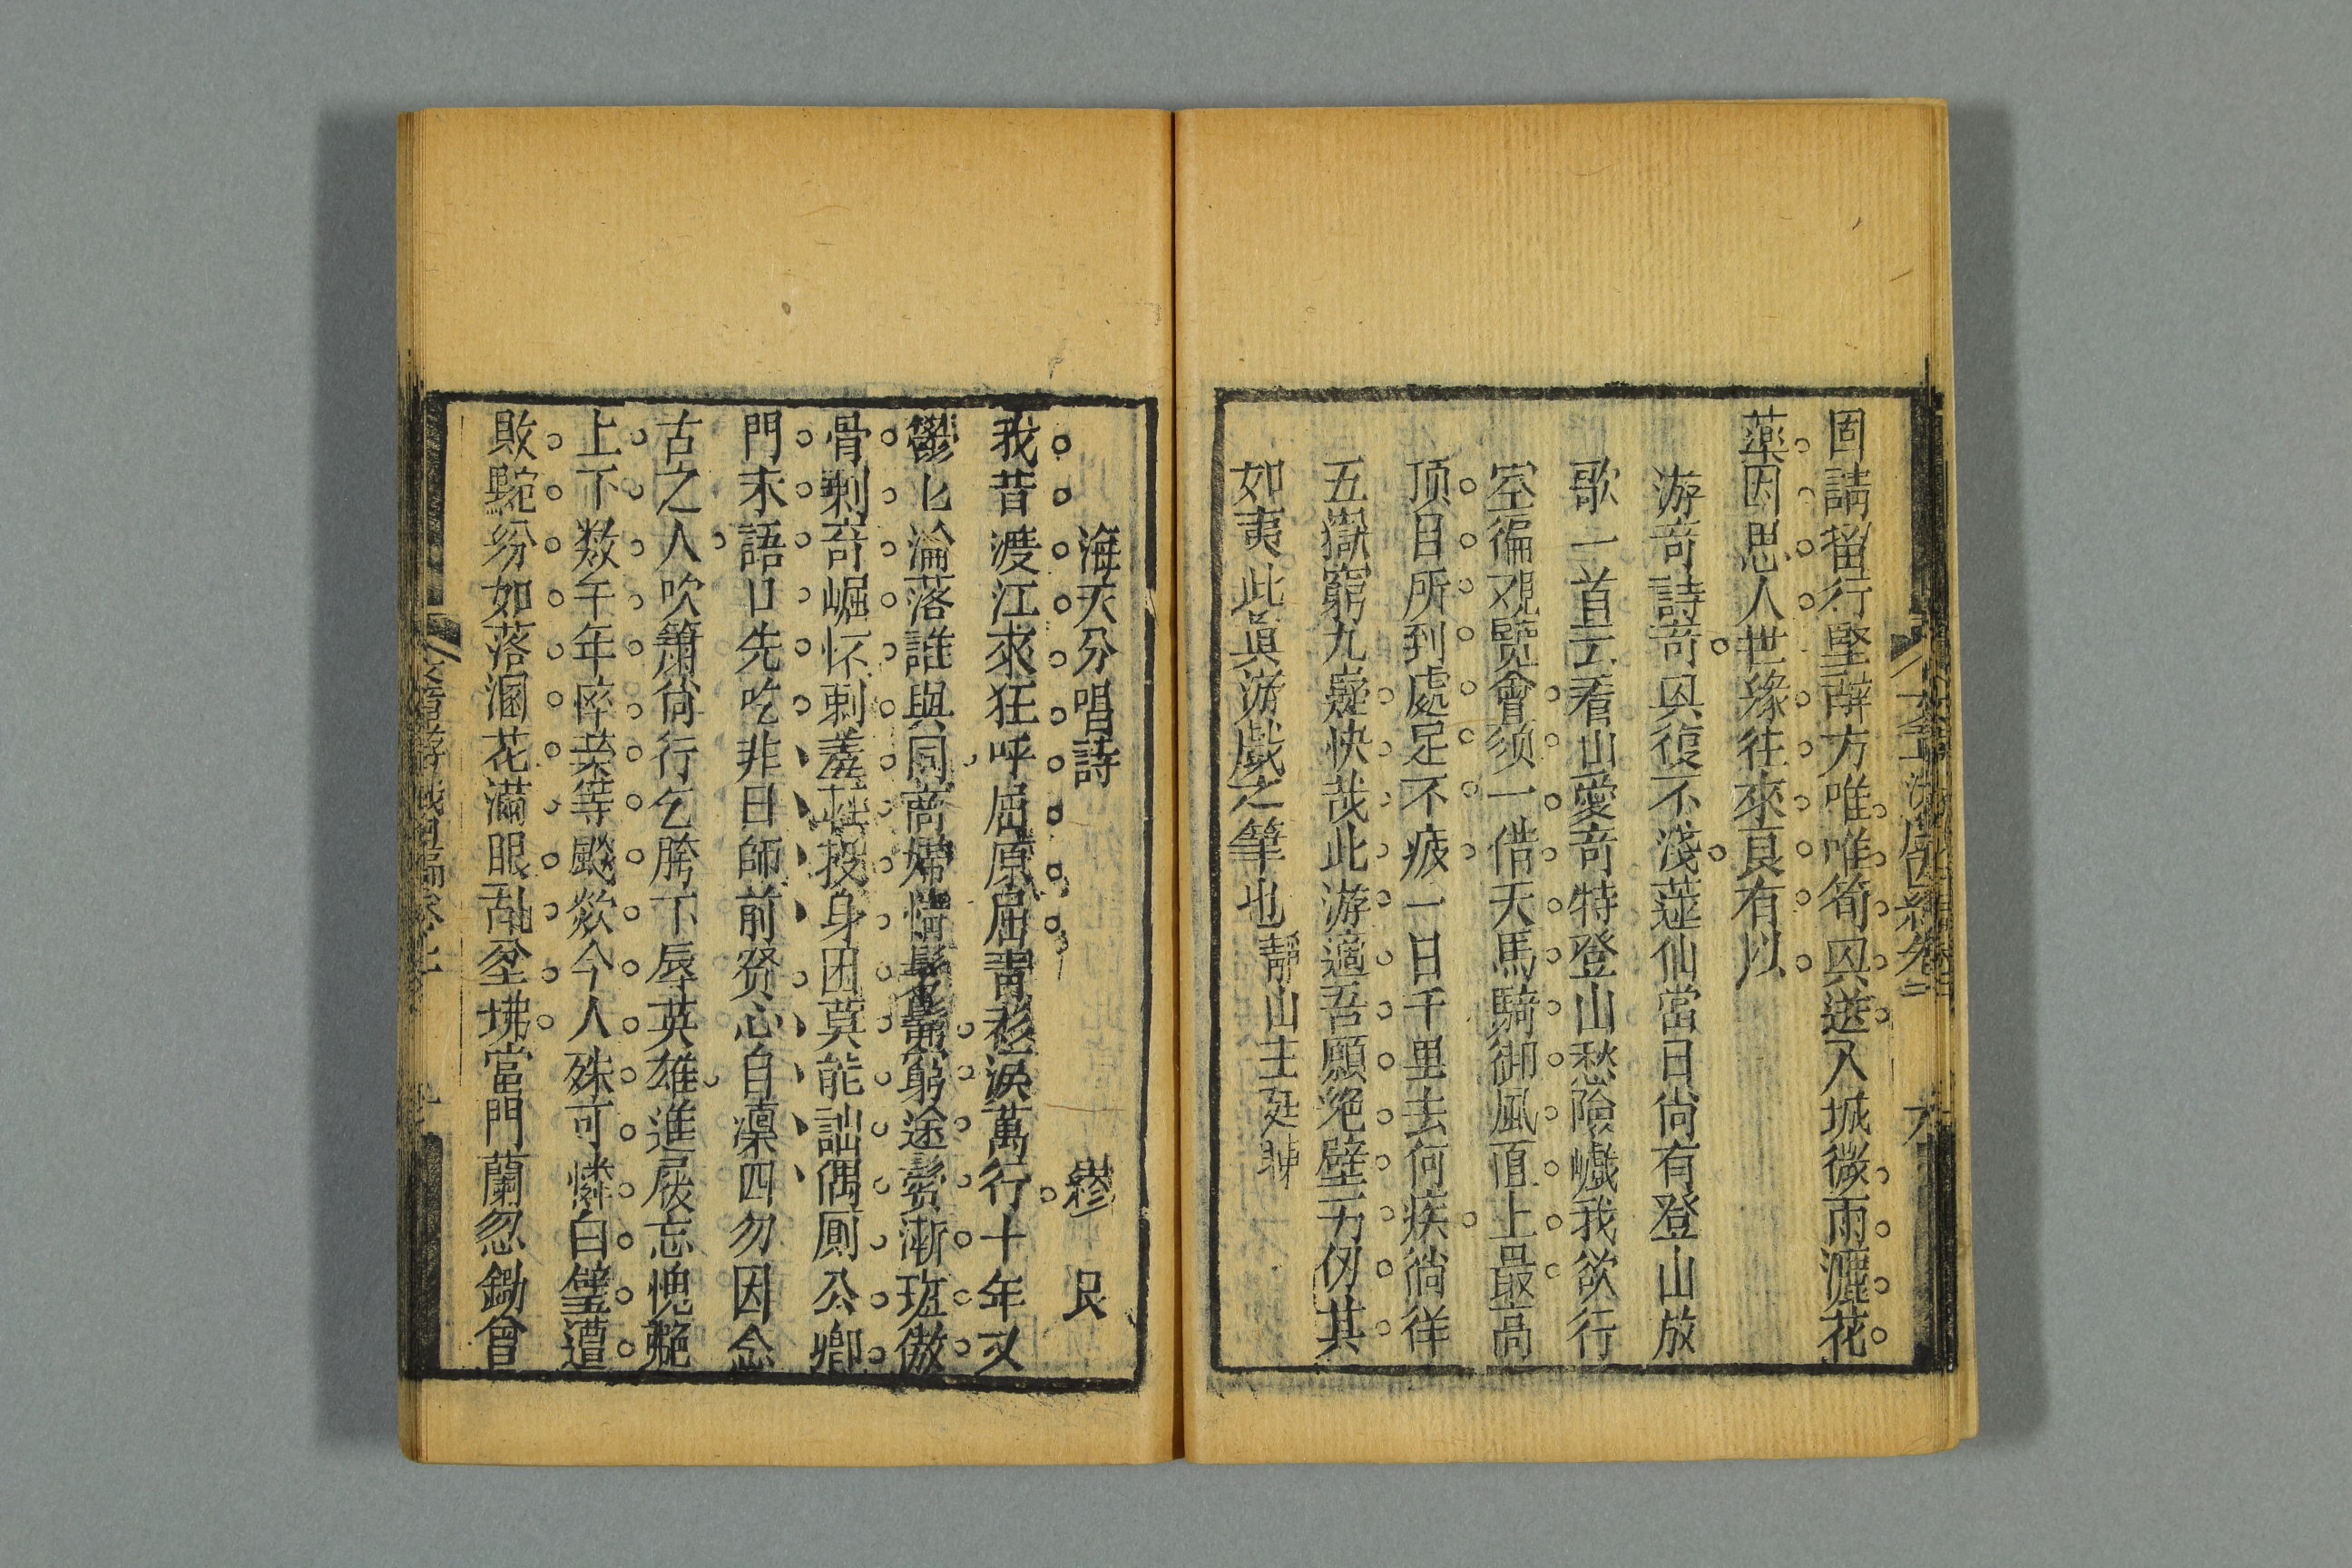 固請留行堅辭方唯唯筍輿遊入城微雨漉花
藥因思人世緣往來良有以
游奇詩奇與復不淺蓮仙當日尚有登山放
歌一首云看山愛奇特登山愁險巇我欲行
空徧覌覽會须一借天馬騎御風頂上最高
顶目所到處足不疲一日千里去何疾徜徉
五嶽窮九嶷快哉此游適吾願絶壁一万仞其
如夷此眞游戲之筆也靜山主
海天分唱詩
繆艮
我昔渡江來狂呼屈原屈靑衫淚萬行十年又
鬱匕淪落誰與同商婦情鬆鬢窮途鬢漸班傲
骨剩奇崛怀剌羞輕投身困莫能詘偶厠公卿
門末語口先吃非日師前賢心自凛四勿因念
古之人吹簫尙行乞胯下辱英雄進屐忘愧赩
上下数千年瘁英等䬃欻今人殊可憐白璧遭
敗駝紛如落溷花滿眼乱坌坲當門蘭忽鋤曾